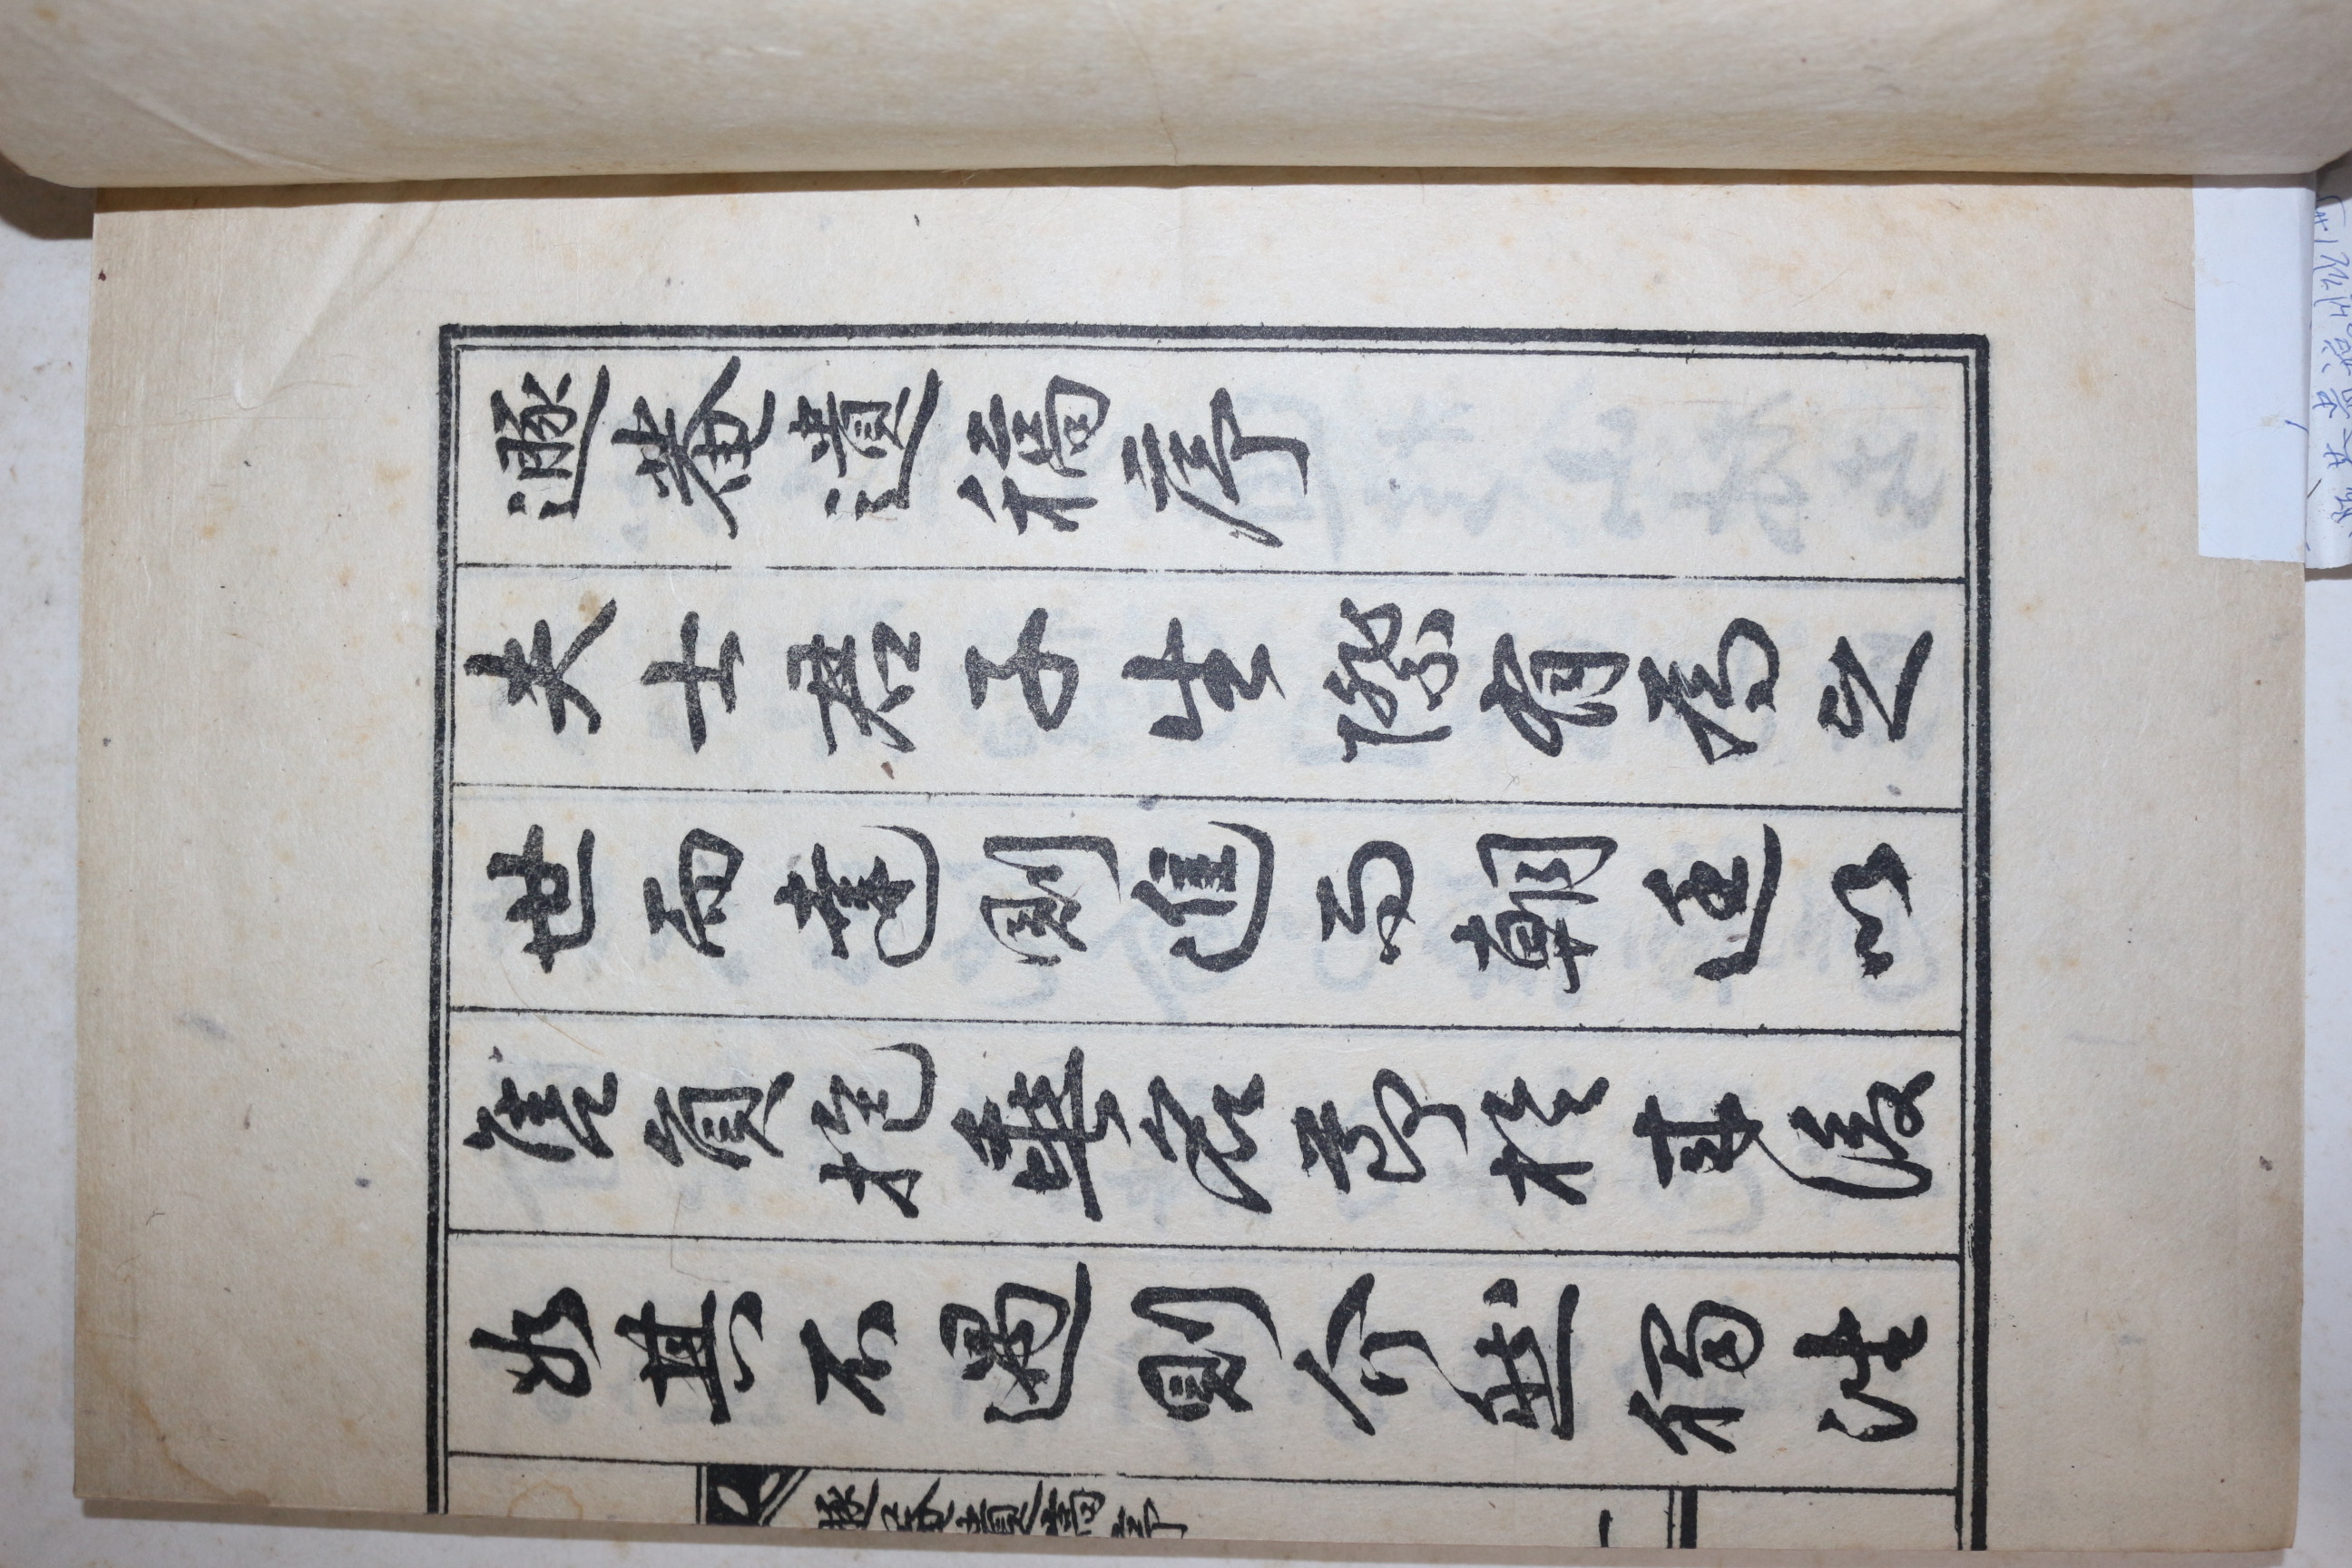 遯菴遺稿序
夫士君子生際有爲之
世而達則進而朝廷以
售負抱垂名節於來後
如其不遇則介然獨潔
遯菴遺稿序
一